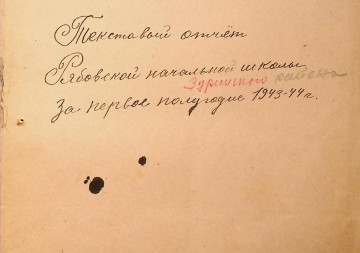 Текстовый отчёт
Рябовской начальной школы
Зуринского района
За первое полугодие 1943-44 г.